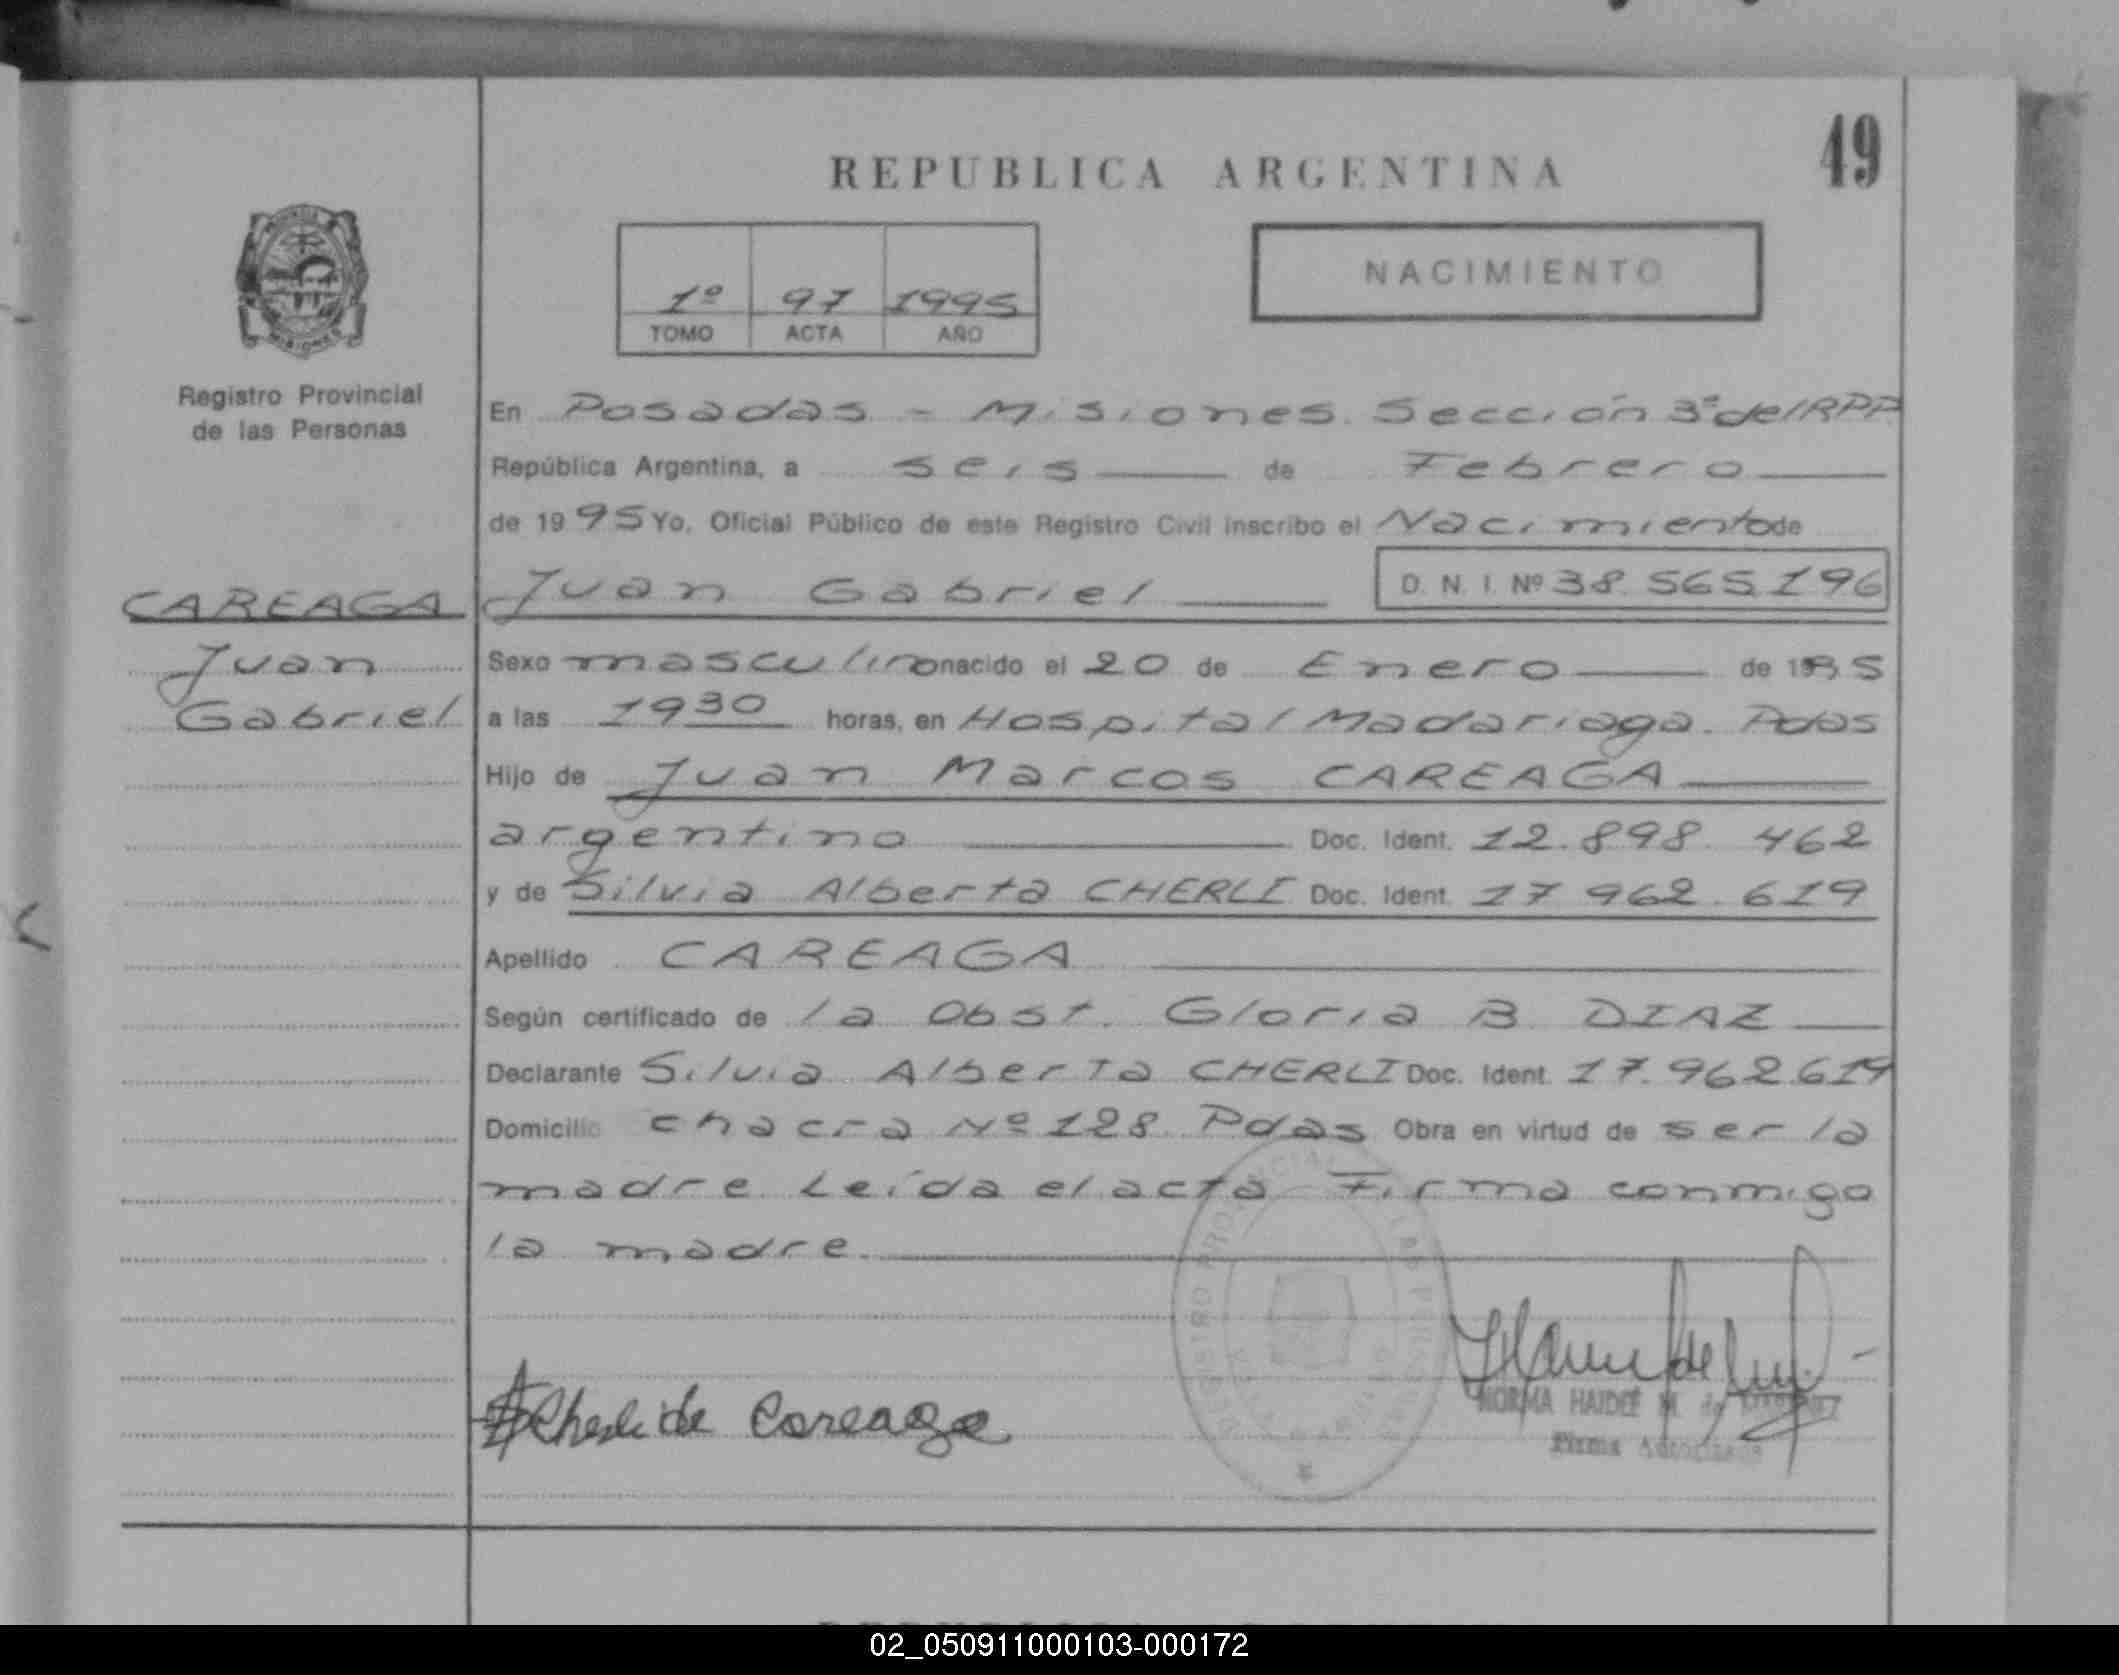 49
REPUBLICA ARGENTINA
NACIMIENTO
1º 97 1995
TOMO ACTA AÑO
MISIONES
Registro Provincial
de las Personas
CAREAGA
Juan
Gabriel
En Posadas - Misiones. Sección 3ª del RPP.
República Argentina, a seis de Febrero
de 1995 Yo, Oficial Público de este Registro Civil inscribo el Nacimiento de
Juan Gabriel D. N. I. Nº 38.565.196
Sexo masculino nacido el 20 de Enero de 1995
a las 19 30 horas, en Hospital Madariaga. Pdas
Hijo de Juan Marcos CAREAGA
argentino Doc. Ident. 12.898.462
y de Silvia Alberta CHERLI Doc. Ident. 17 962.619
Apellido CAREAGA
Según certificado de la Obst. Gloria B. DIAZ
Declarante Silvia Alberta CHERLI Doc. Ident. 17.962.619
Domicilio chacra Nº 128 Pdas Obra en virtud de ser la
madre. Leída el acta Firma conmigo
la madre.
Cherli de Careaga
NORMA HAIDEE M. de
Firma Autorizada
02_050911000103-000172